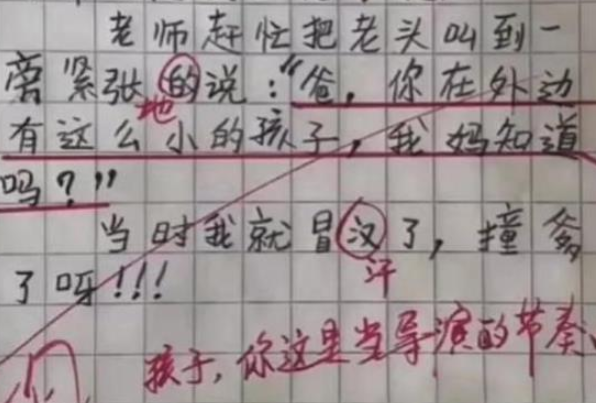 老师赶忙把老头叫到一
旁紧张的说:“爸,你在外边
地
有这么小的孩子,我妈知道
吗?”
当时我就冒汉了,撞爹
汗
了呀!!!
孩子,你这是当导演的节奏